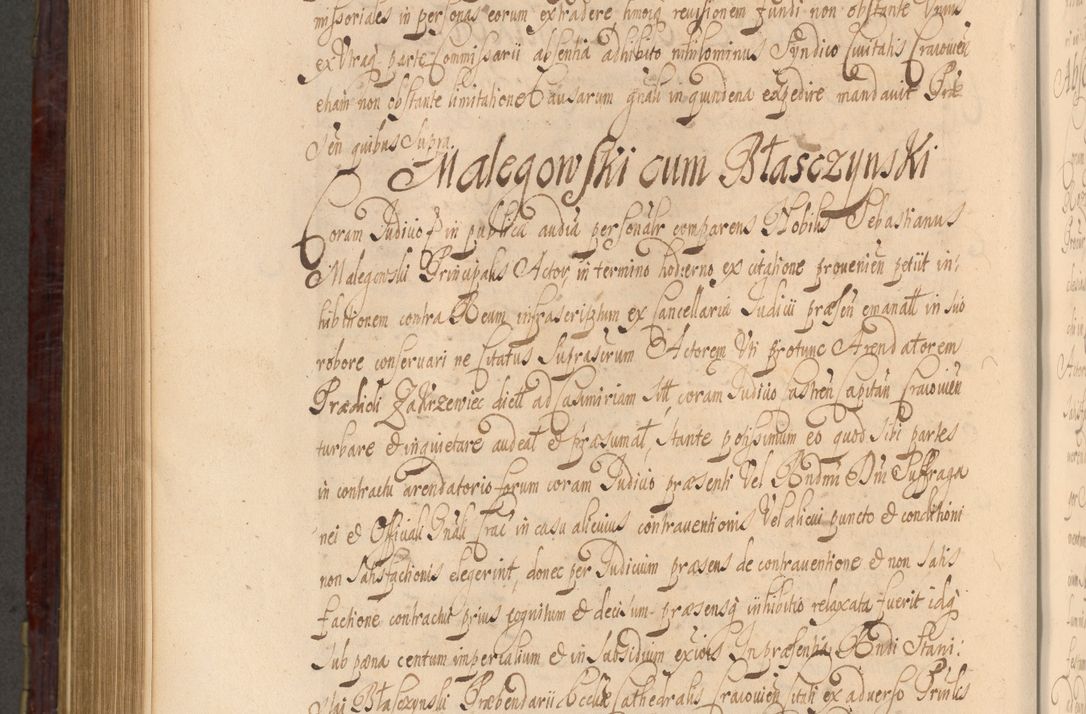 missoriales in personas eorum extradere hmoią revisionem fundi non obstante Unius
ex Utraq parte Commissarii absentia adhibito nihilominus Syndico Civitatis Cracovien
etiam non obstante limitatione Causarum gnali in quindena expedire mandavit Præ
sen quibus supra.
Malegowski cum Błasczynski
Coram Judicio in publica audia personalr comparens Nobilis Sebastianus
Malegowski Principalis Actor, in termino hodierno ex citatione provenien petiit in:
hibitionem contra Reum infrascriptum ex Cancellaria Judicii præsen emanatt in suo
robore conservari ne Citatus Suprascrum Actorem Uti protunc Arendatorem
Prædioli Zakrzewiec dictt ad Casimiriam sitt, coram Judicio Castren Capitan Cracovien
turbare et inquietare audeat et præsumat, stante potissimum eo quod sibi partes
in contractu arendatorio forum coram Judicio præsenti Vel Rndmi Dni Suffraga
nei et Officiali Gnali Crac in casu alicuius contraventionis Vel alicui puncto et conditioni
non satisfactionis elegerint, donec per Judicium præsens de contraventione et non satis
factione contractui prius cognitum et decisum præsensq inhibitio relaxata fuerit idq
sub pæna centum imperialium et in subsidium exiois In præsentia Rndi Stani:
slai Błasczynski Præbendarii Eccliæ Cathedralis Cracovien Citati ex adverso Prinlis